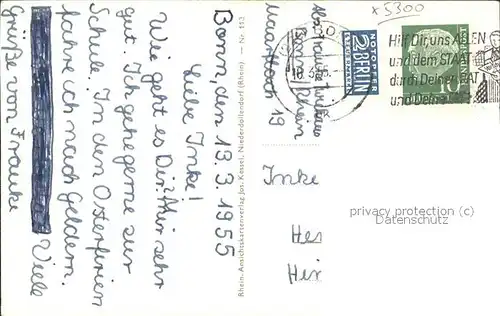 x 5300
Bonn, den 13.3.1955
Liebe Imke!
Wie geht es Dir? Mir sehr
gut. Ich gehe gerne zur
Schule. In den Osterferien
fahre ich nach Geldern.
Viele
Grüße von Frauke
Rhein. Ansichtskartenverlag Jos. Kessel, Niederdollendorf (Rhein) — Nr. 113
Abs. Frauke
Bonn Rhein
19
NOTOPFER
2 BERLIN
STEUERMARKE
10
Hilf Dir, uns ALLEN
und dem STAAT
durch Deinen RAT
und Deine
Imke
Her
Hin
privacy protection (c)
Datenschutz